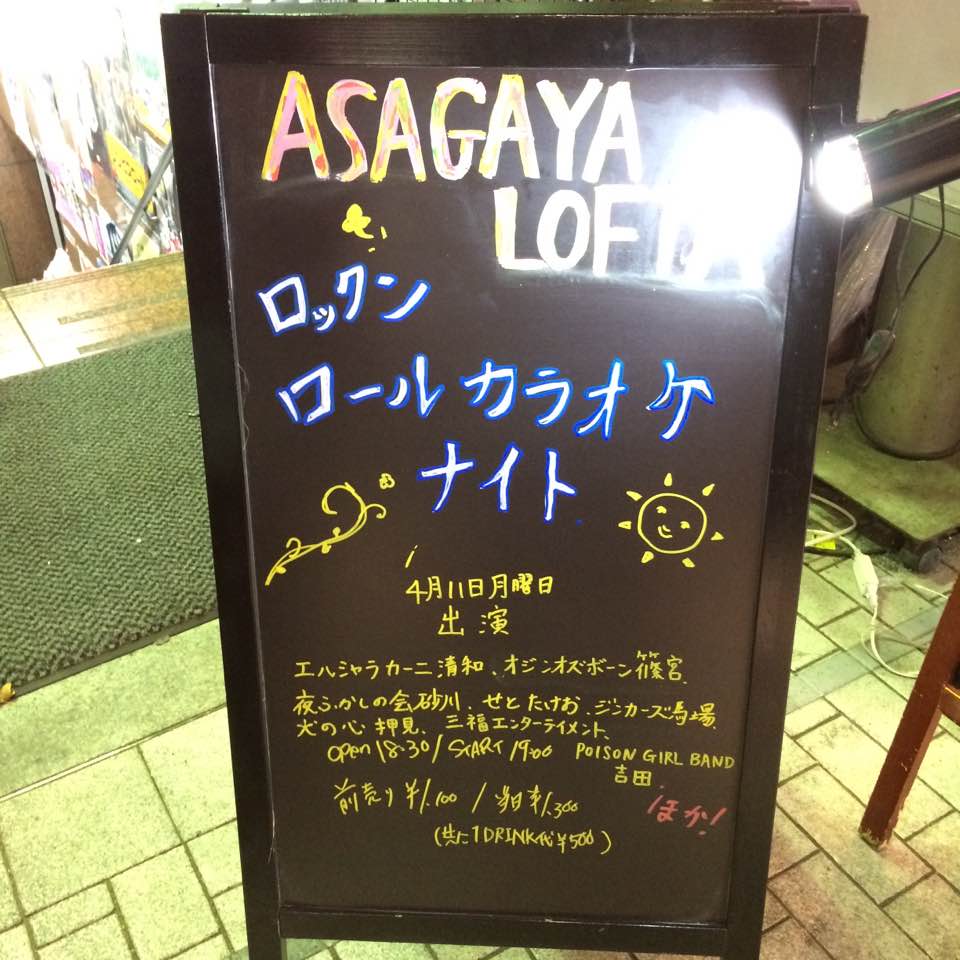 ASAGAYA
LOFT A
ロックン
ロール カラオケ
ナイト
4月11日月曜日
出演
エルシャラカーニ清和、オジンオズボーン篠宮
夜ふかしの会砂川、せとたけお、ジンカーズ馬場
犬の心押見、三福エンターテイメント、
OPEN 18:30 / START 19:00 POISON GIRL BAND
吉田
前売り ¥1,100 / 当日 ¥1,300
ほか!
(共に1DRINK代¥500)